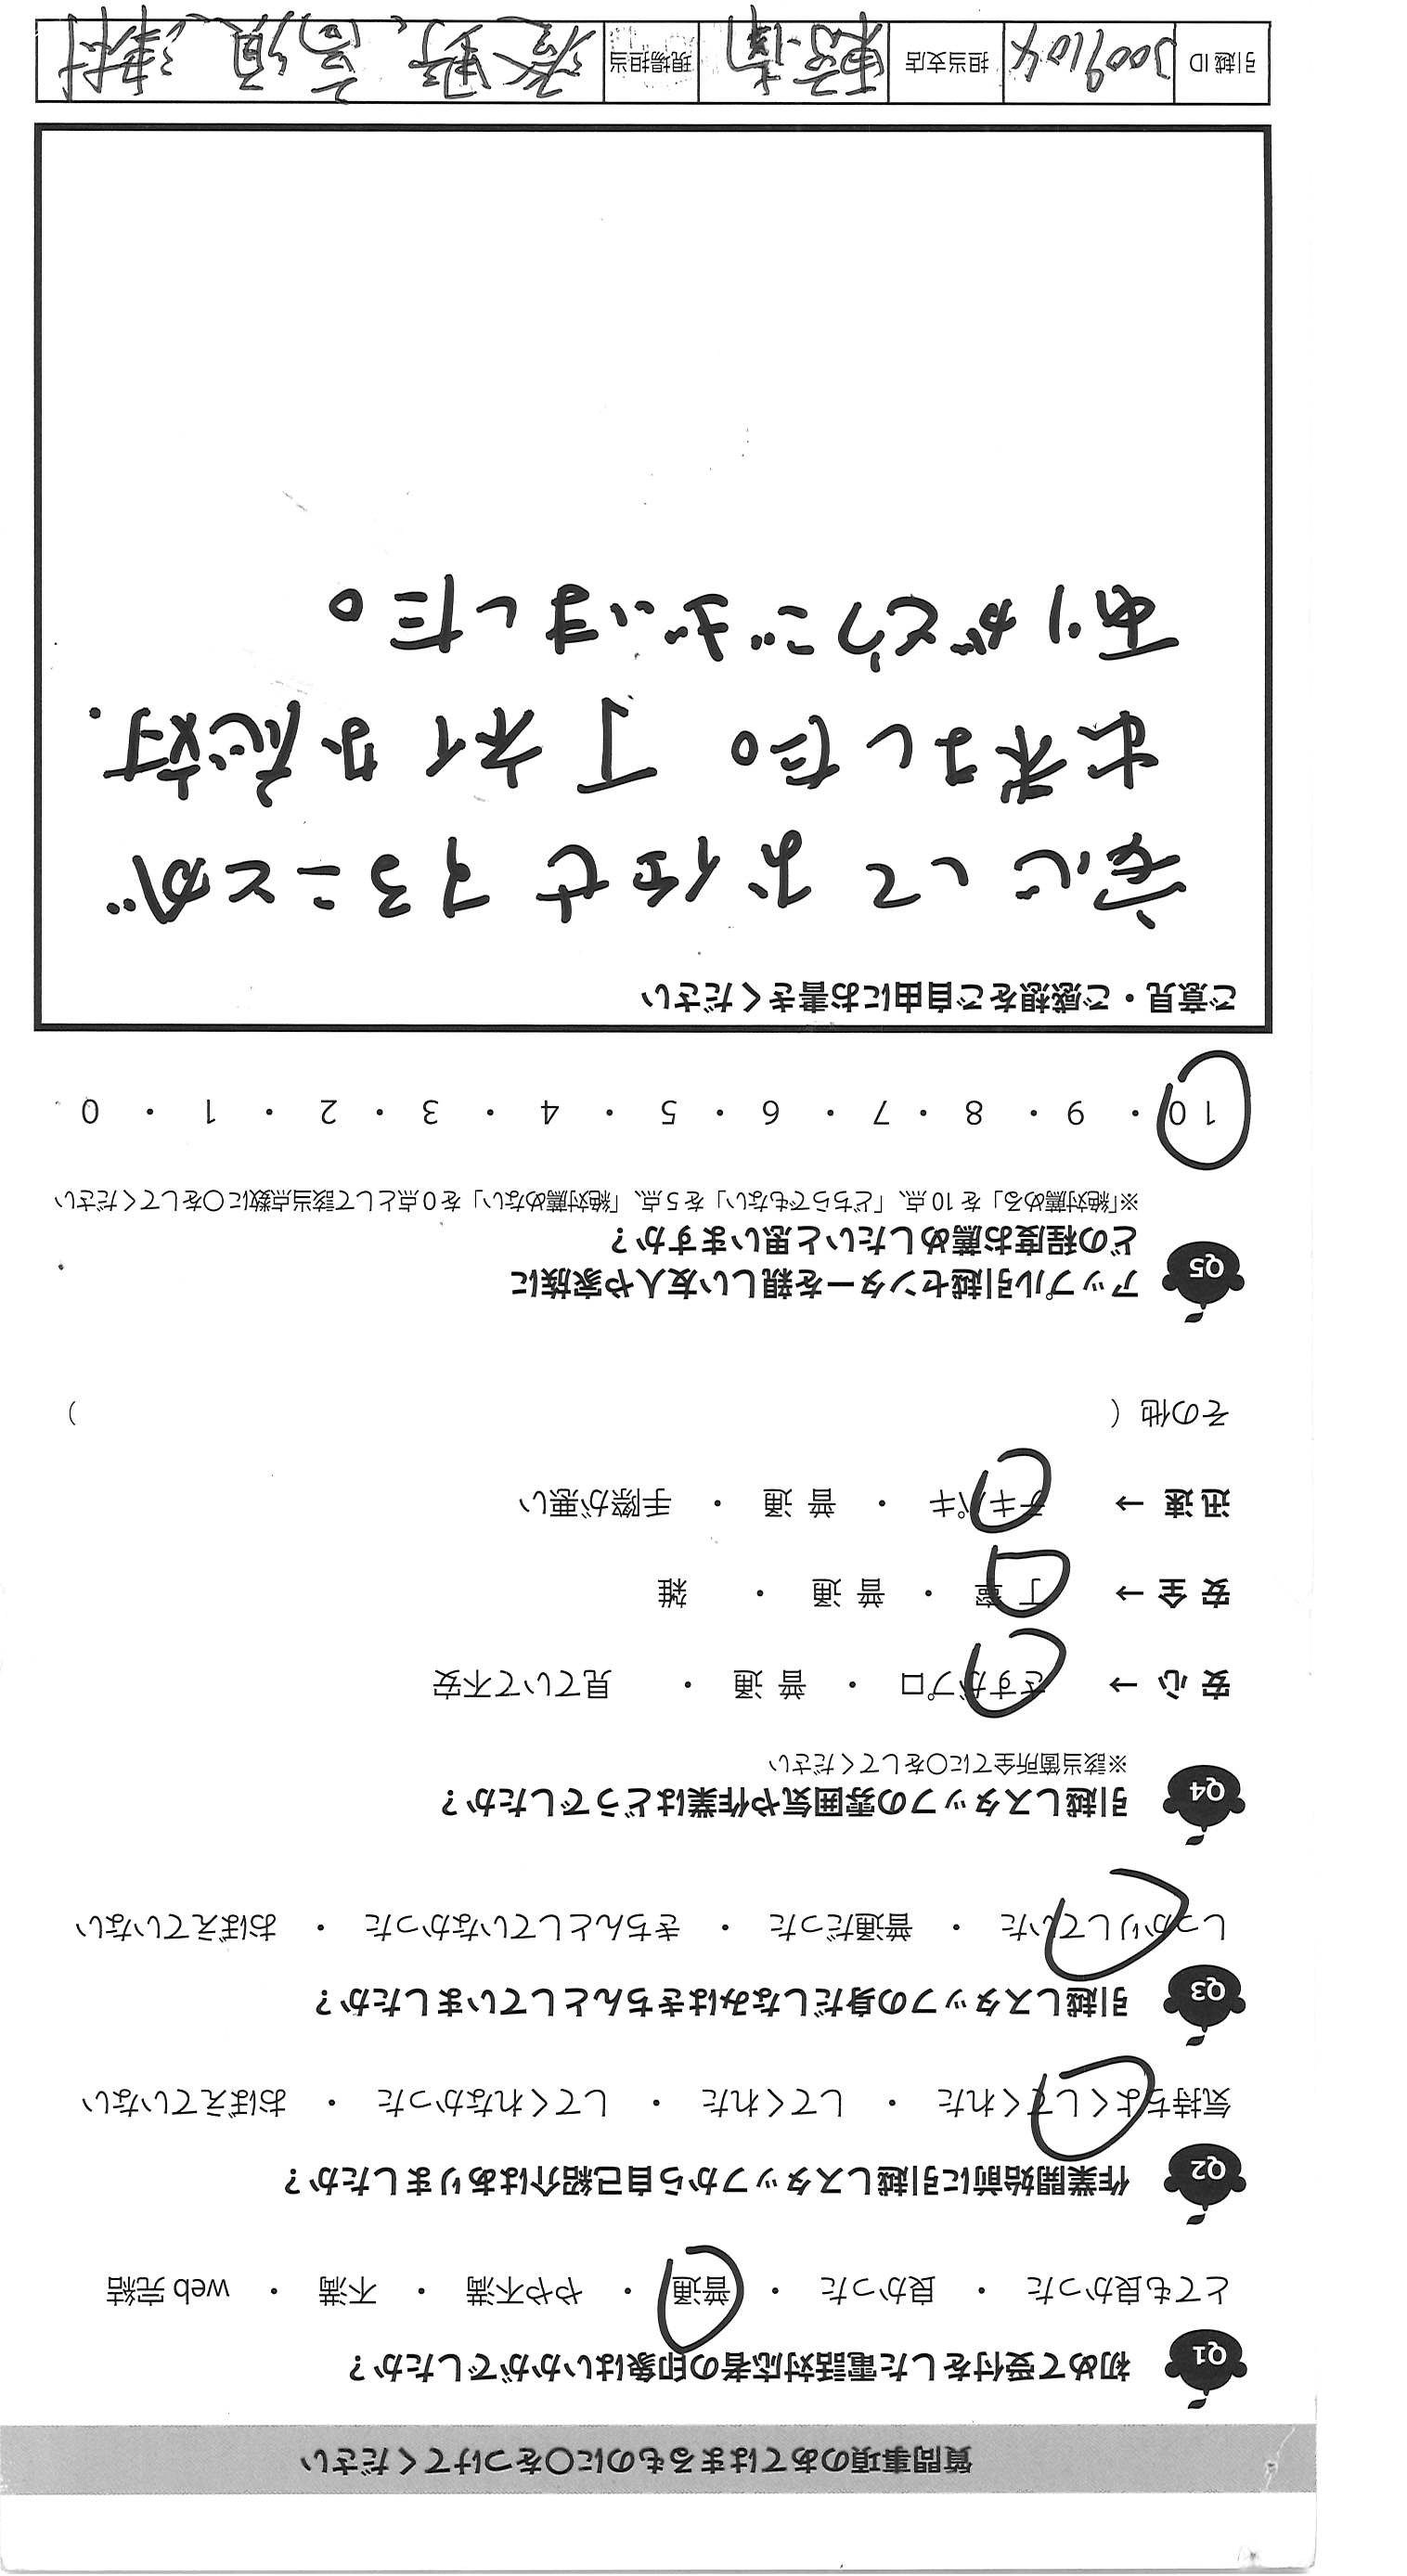 質問事項のあてはまるものに○をつけてください
Q1 初めて受付をした電話対応者の印象はいかがでしたか？
とても良かった ・ 良かった ・ 普通 ・ やや不満 ・ 不満 ・ web 完結
Q2 作業開始前に引越しスタッフから自己紹介はありましたか？
気持ちよくしてくれた ・ してくれた ・ してくれなかった ・ おぼえていない
Q3 引越しスタッフの身だしなみはきちんとしていましたか？
しっかりしていた ・ 普通だった ・ きちんとしていなかった ・ おぼえていない
Q4 引越しスタッフの雰囲気や作業はどうでしたか？
※該当箇所全てに○をしてください
安 心 → さすがプロ ・ 普 通 ・ 見ていて不安
安 全 → 丁 寧 ・ 普 通 ・ 雑
迅 速 → テキパキ ・ 普 通 ・ 手際が悪い
その他（ ）
Q5 アップル引越センターを親しい友人や家族に
どの程度お薦めしたいと思いますか？
※「絶対薦める」を 10 点、「どちらでもない」を 5 点、「絶対薦めない」を 0 点として該当点数に○をしてください
10 ・ 9 ・ 8 ・ 7 ・ 6 ・ 5 ・ 4 ・ 3 ・ 2 ・ 1 ・ 0
ご意見・ご感想をご自由にお書きください
安心して お任せ することが
出来ました。 丁ネイな応対.
ありがとうございました。
引越 ID 3009104 担当支店 現場担当 高須 津村